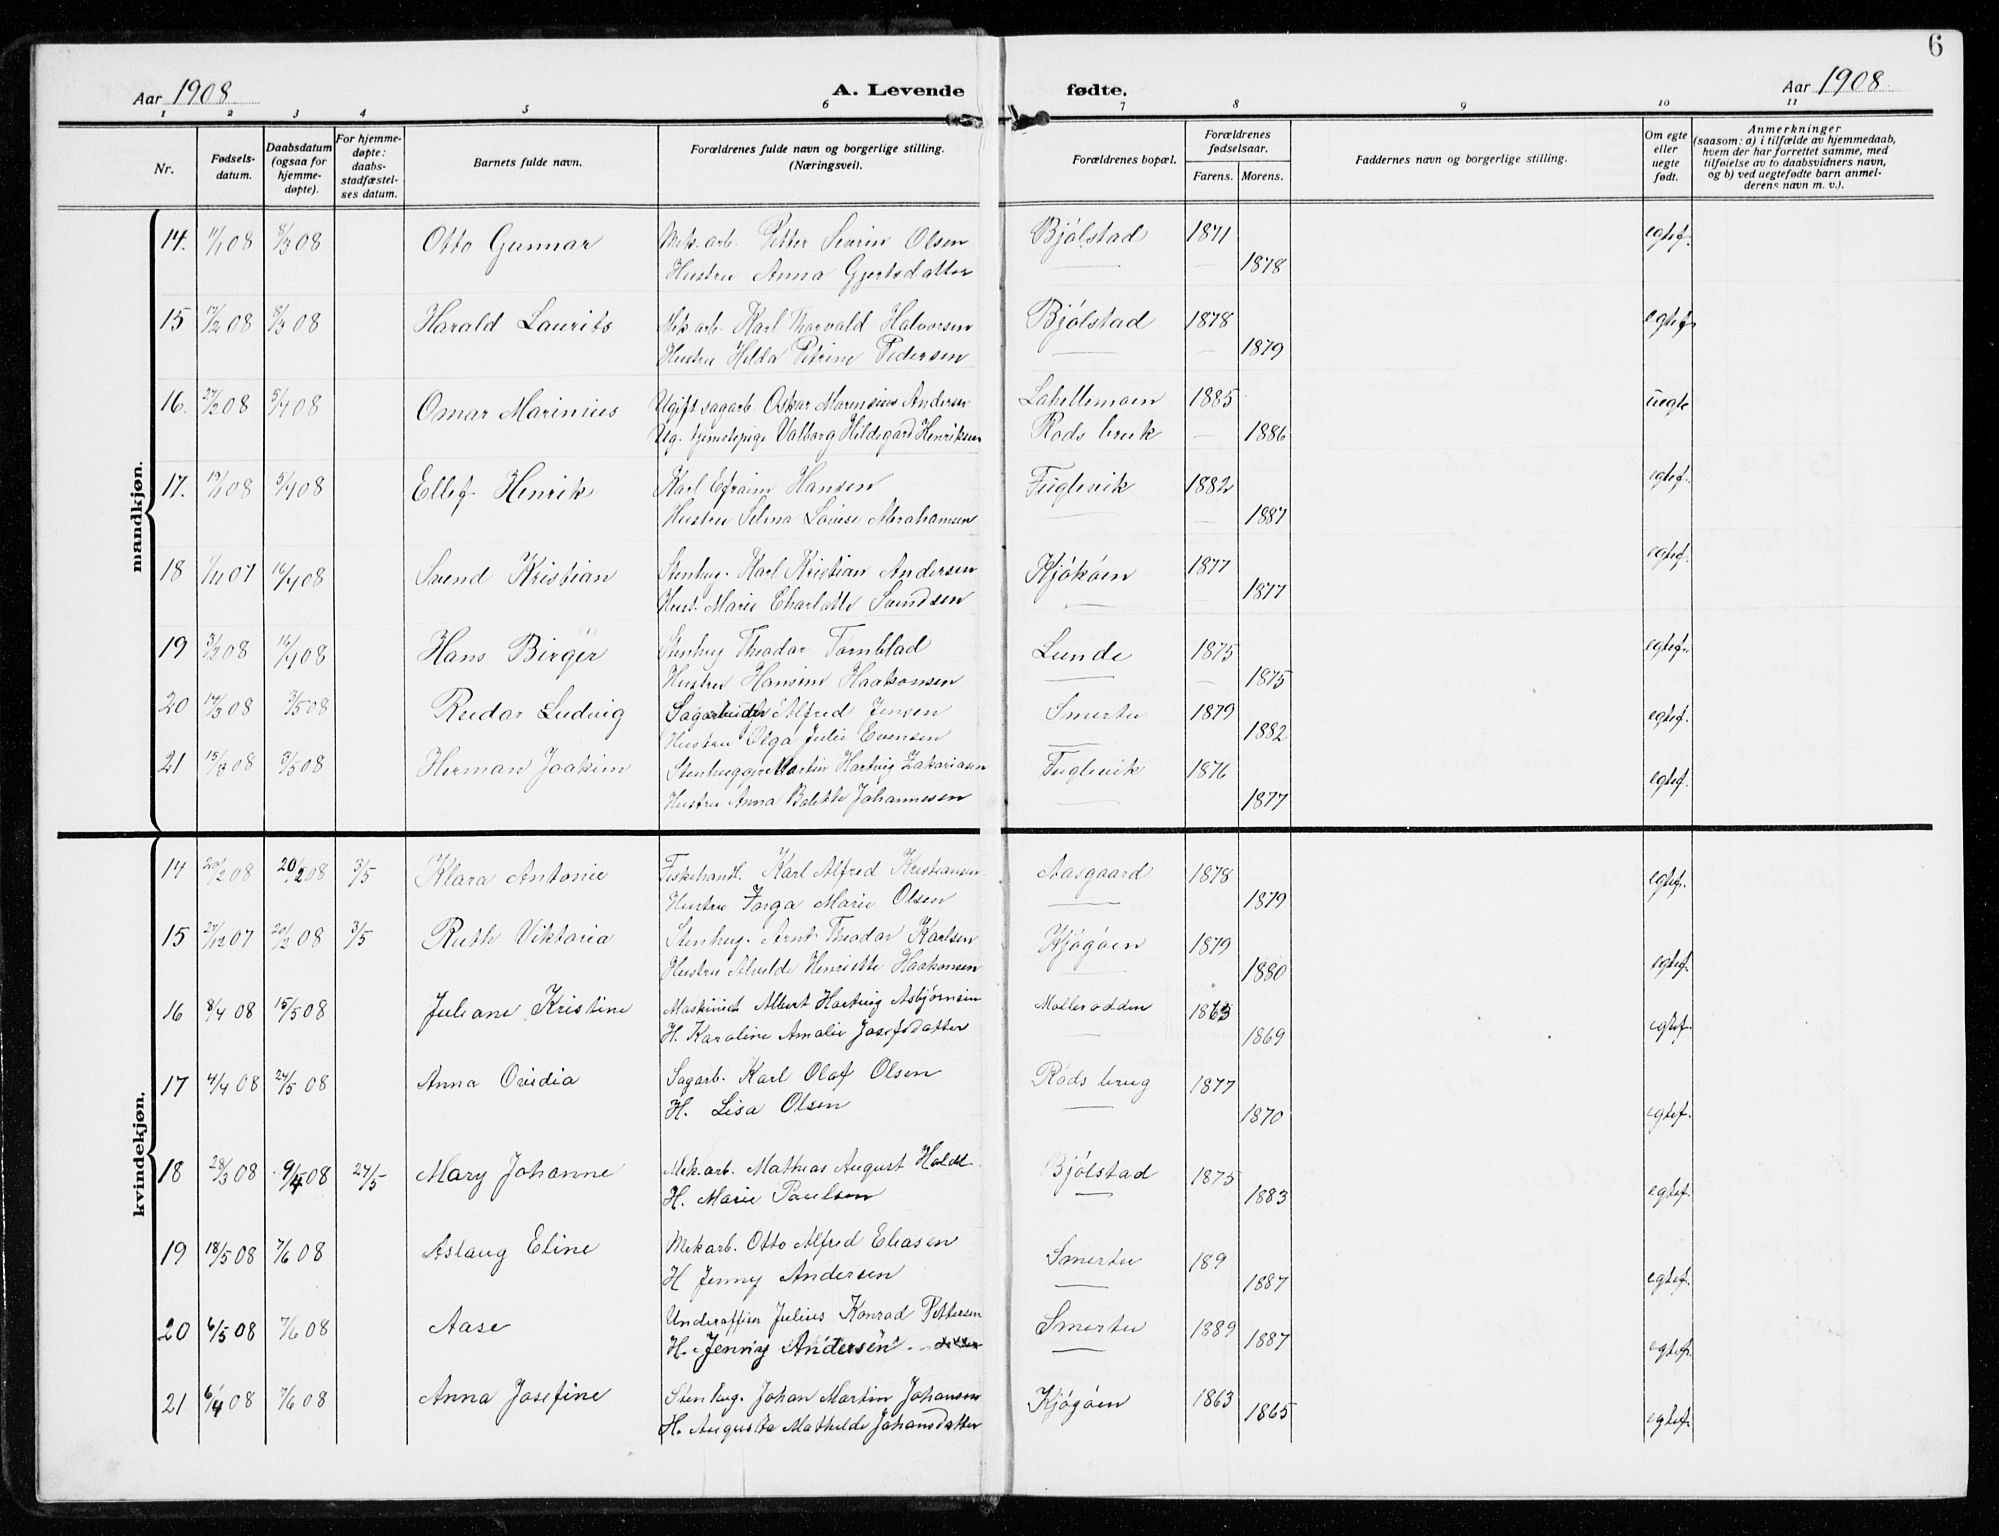 6
Aar 1908 A. Levende fødte. Aar 1908
1 2 3 4 5 6 7 8 9 10 11
Nr. Fødsels-datum. Daabsdatum (ogsaa for hjemme-døpte). For hjemme-døpte: daabs-stadfæstel-ses datum. Barnets fulde navn. Forældrenes fulde navn og borgerlige stilling. (Næringsvei). Forældrenes bopæl. Forældrenes fødselsaar. Farens. Morens. Faddernes navn og borgerlige stilling. Om egte eller uegte født. Anmerkninger (saasom: a) i tilfælde av hjemmedaab, hvem der har forrettet samme, med tilføielse av to daabsvidners navn, og b) ved uegtefødte barn anmel-derens navn m. v.).
mandkjøn.
14. 08 8/3 08 Otto Gunnar Mek. arb. Petter Severin Olsen Bjölstad 1871 egtef.
Hustru Anna Gjertsdatter 1878
15 08 8/3 08 Harald Laurits Mek arb. Karl Thorvald Halvorsen Bjölstad 1878 egtef.
Hustru Hilda Petrine Pedersen 1879
16. 27/2 08 5/4 08 Omar Marinius Ugift sagarb. Oskar Marensius Andersen 1885 uegte
Ug. tjenestepige Valborg Hildegard Henriksen Röds bruk 1886
17. 19/1 08 5/4 08 Ellef Henrik Karl Efraim Hansen Fuglevik 1882 egtef.
Hustru Selma Lovise Abrahamsen 1887
18 07 16/4 08 Svend Kristian Stenhug. Karl Kristian Andersen Kjököen 1877 egtef.
Hust. Marie Charlotte Svendsen 1877
19 3/2 08 16/4 08 Hans Birger Stenhug Theodor Tornblad Lunde 1875 egtef.
Hustru Hansine Haakonsen 1875
20 08 3/5 08 Reidar Ludvig Sagarbeider Alfred Jensen Smertu 1879 egtef.
Hustru Olga Julie Evensen 1882
21 15/3 08 3/5 08 Herman Joakim Stenhugger Martin Hartvig Zakariasen Fuglevik 1876 egtef.
Hustru Anna Bolette Johannesen 1877
kvindekjøn.
14 20/2 08 20/2 08 3/5 Klara Antonie Fiskehandl. Karl Alfred Kristiansen Aasgaard 1878 egtef.
Hustru Inga Marie Olsen 1879
15 27/12 07 20/2 08 3/5 Ruth Viktoria Stenhug. Arnt Theodor Karlsen Kjögöen 1879
Hustru Alvilde Henriette Haakonsen 1880 egtef.
16 8/4 08 15/5 08 Juliane Kristine Maskinist Albert Hartvig Asbjørnsen Möllerodden 1863
H. Karoline Amalie Josefsdatter 1869 egtef.
17 4/4 08 24/5 08 Anna Ovidia Sagarb. Karl Olaf Olsen Röds brug 1877
H. Lisa Olsen 1870 egtef.
18 28/3 08 9/4 08 24/5 Mary Johanne Mek. arb. Mathias August Holdt Bjölstad 1875
H. Marie Paulsen 1883 egtef.
19 18/5 08 7/6 08 Aslaug Eline Mek arb. Otto Alfred Eliasen Smertu 189
H Jenny Andersen 1887 egtef.
20 6/5 08 7/6 08 Aase Underoffiser Julius Konrad Pettersen Smertu 1889
H. Jenny Andersen 1887 egtef.
21 6/4 08 7/6 08 Anna Josefine Stenhug. Johan Martin Johansen Kjögöen 1863
H. Augusta Mathilde Johansdatter 1865 egtef.